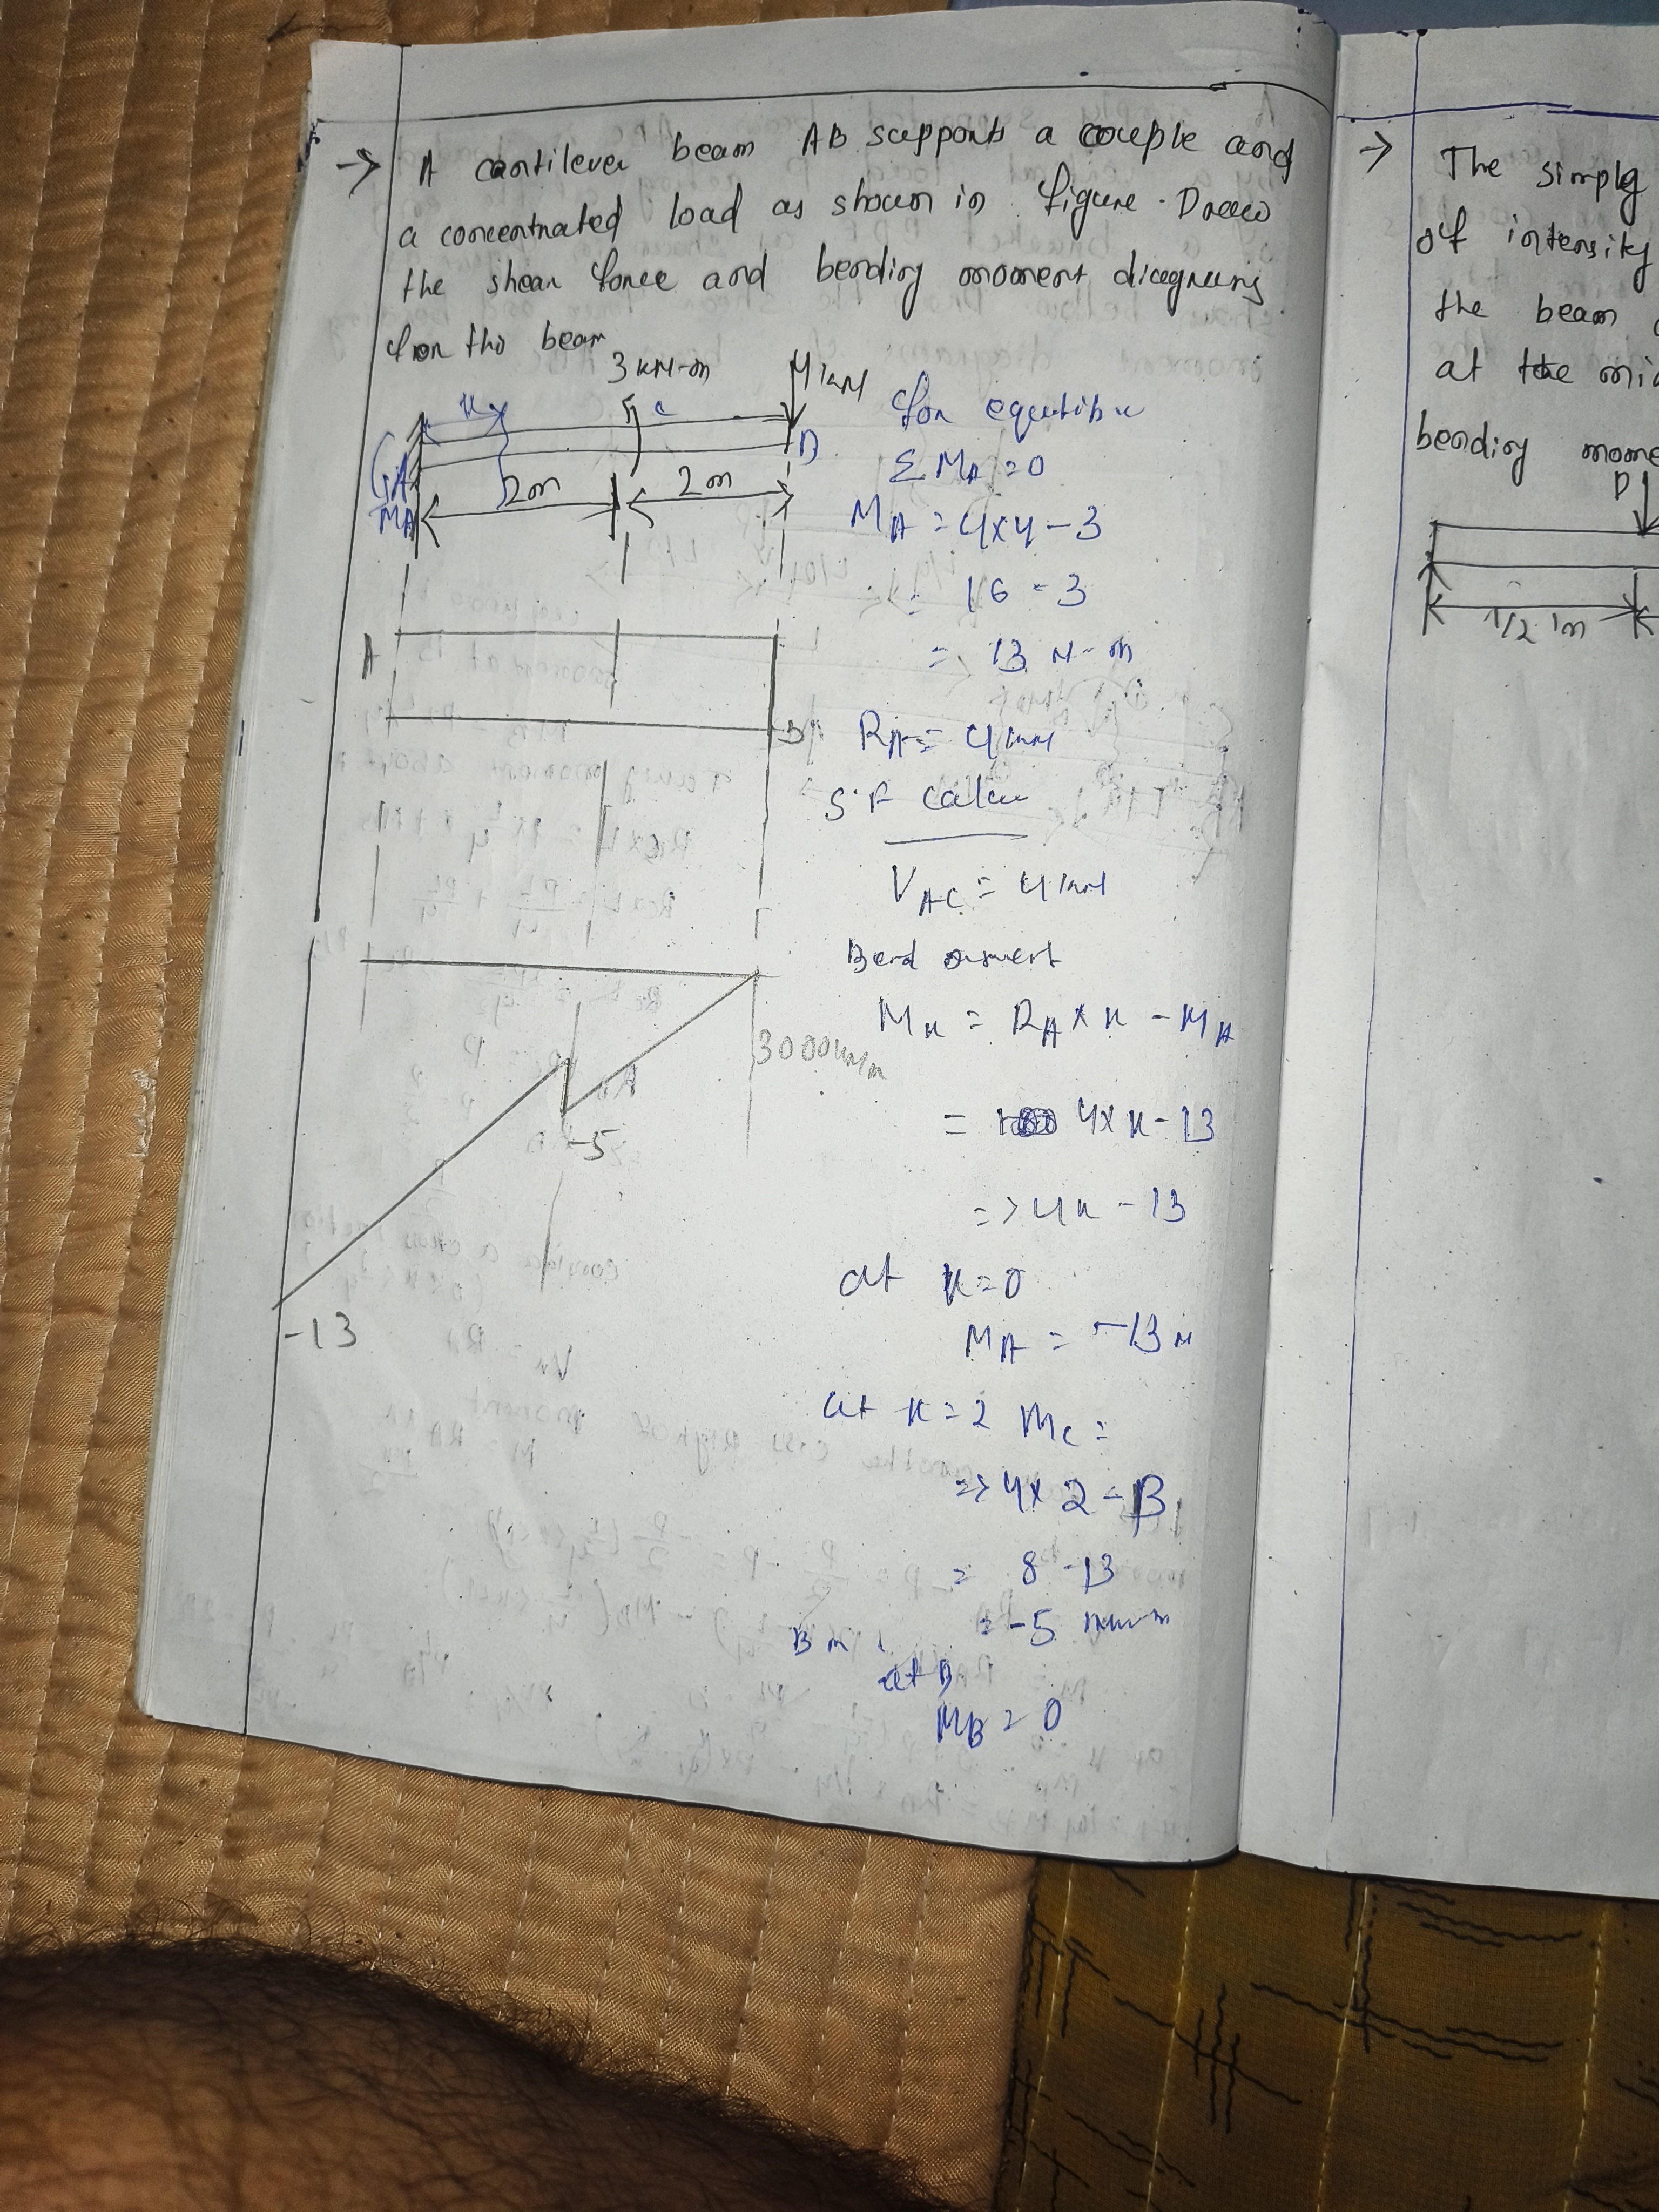 → A cantilever beam AB supports a couple and
a concentrated load as shown in figure. Draw
the shear force and bending moment diagrams
for the beam
3 kN-m
4 kN
x
c
B
A
MA
2m
2m
A
B
3000
-5
-13
for
Σ MA = 0
MA = 4x4 - 3
= 16 - 3
= 13 N-m
RA = 4 kN
S.F calcu
VAC = 4 kN
Bend
Mx = RA x x - MA
= 4x x - 13
=> 4x - 13
at x = 0
MA = -13 N
at x = 2 Mc =
=> 4x 2 - 13
= 8 - 13
= -5
B m
at B
MB = 0
→ The simply
of intensity
the beam
at the mid
bending mome
P
1/2 m